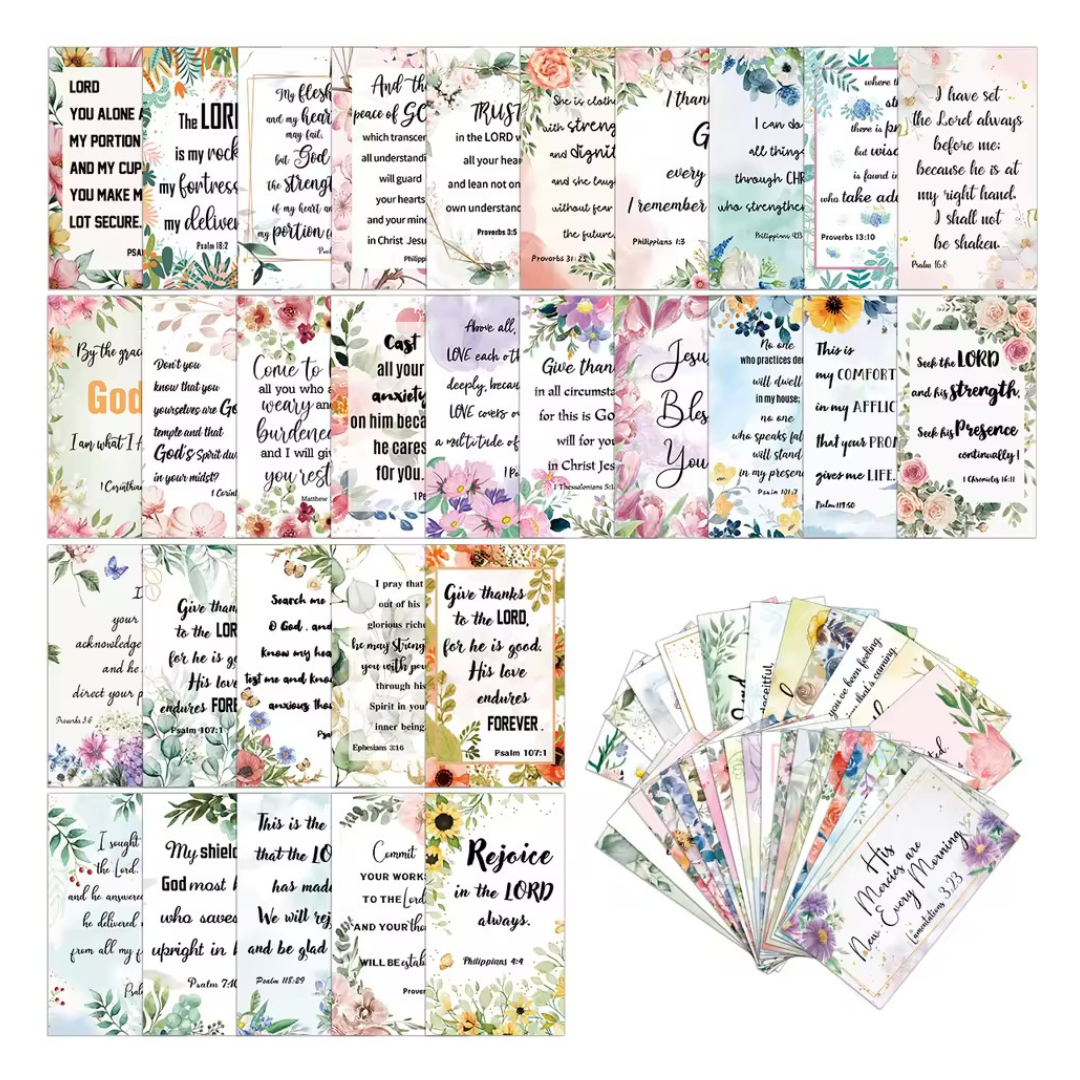 LORD
YOU ALONE A
MY PORTION
AND MY CUP
YOU MAKE M
LOT SECURE.
PSA
The LORD
is my rock
my fortress
my deliver
Psalm 18:2
My flesh
and my hear
may fail,
but God
the strengt
of my heart an
my portion
And th
peace of GO
which transcen
all understandi
will guard
your hearts
and your mind
in Christ Jesu
Philipp
TRUST
in the LORD w
all your hear
and lean not on
own understand
Proverbs 3:5
She is cloth
with streng
and dignit
and she laug
without fear
the future.
Proverbs 31:25
I than
G
every
I remember
Philippians 1:3
I can do
all things
through CHR
who strengthe
Philippians 4:13
where t
st
there is p
but wisd
is found i
who take adv
Proverbs 13:10
I have set
the Lord always
before me:
because he is at
my right hand,
I shall not
be shaken.
Psalm 16:8
By the grac
God
I am what I A
1 Corinthian
Don't you
know that you
yourselves are Go
temple and that
God's Spirit dw
in your midst?
1 Corint
Come to
all you who a
weary and
burdened
and I will giv
you rest
Matthew
Cast
all your
anxiety
on him beca
he cares
for you.
1 Pe
Above all,
LOVE each oth
deeply, becau
LOVE covers o
a multitude of
1 Pe
Give than
in all circumsta
for this is Go
will for yo
in Christ Jes
1 Thessalonians 5:1
Jesu
Bles
You
No one
who practices dec
will dwell
in my house;
no one
who speaks fal
will stand
in my presen
Psalm 101:7
This is
my COMFORT
in my AFFLIC
that your PROM
gives me LIFE.
Psalm 119:50
Seek the LORD
and his strength,
Seek his Presence
continually!
1 Chronicles 16:11
I
your
acknowledge
and he
direct your p
Proverbs 3:6
Give than
to the LOR
for he is go
His love
endures FORE
Psalm 107:1
Search me
O God, and
know my hea
test me and know
anxious thou
Psa
I pray that
out of his
glorious riche
he may streng
you with po
through his
Spirit in you
inner being.
Ephesians 3:16
Give thanks
to the LORD,
for he is good.
His love
endures
FOREVER.
Psalm 107:1
deceitful,
you've been feeding,
that's coming.
I sought
the Lord,
and he answered
he delivered
from all my f
Psal
My shield
God most h
who saves
upright in h
Psalm 7:10
This is the
that the LO
has made
We will rej
and be glad
Psalm 118:29
Commit
YOUR WORK
TO THE Lord
AND YOUR tho
WILL BE estab
Prover
Rejoice
in the LORD
always.
Philippians 4:4
His
Mercies are
New Every Morning
Lamentations 3:23